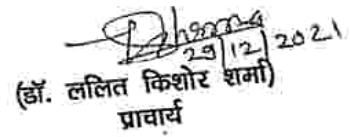 29/12/2021
(डॉ. ललित किशोर शर्मा)
प्राचार्य